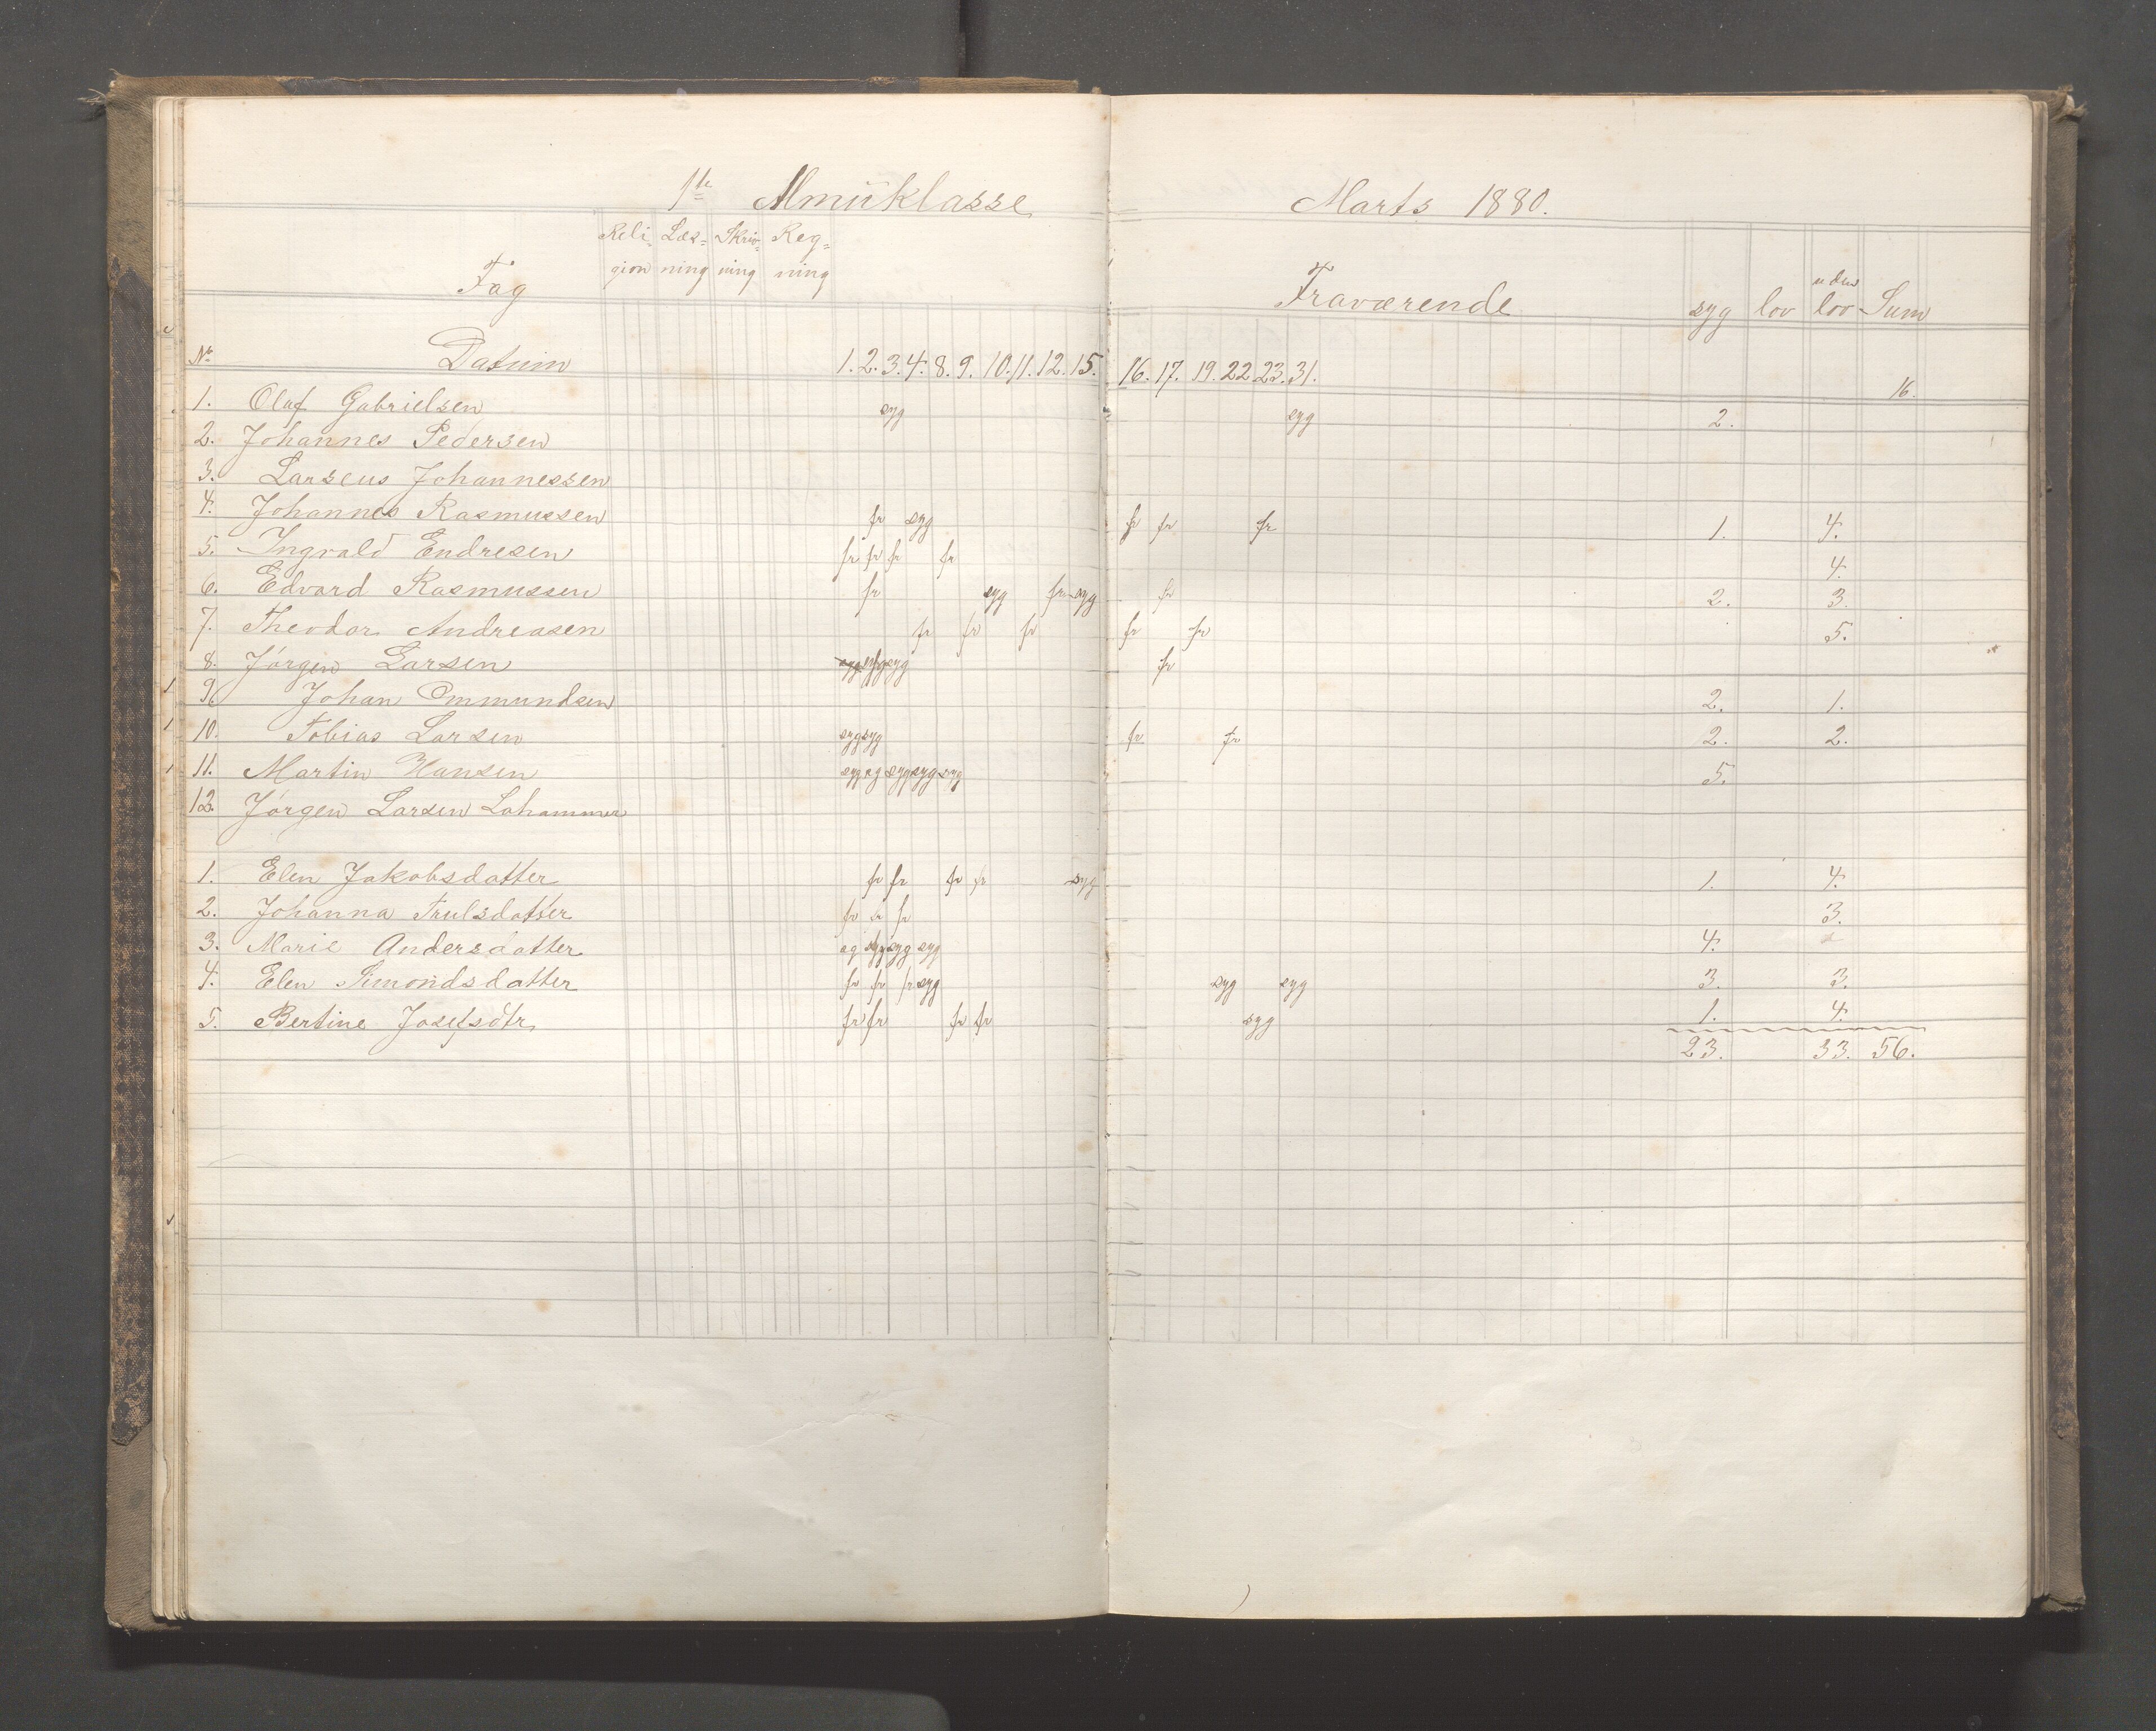 1ste Almüklasse Marts 1880.
Reli- Læs- Skriv- Reg-
gion ning ning ning
Fag Fraværende syg lov uden lov Sum
No Datum 1. 2. 3. 4. 8. 9. 10. 11. 12. 15. 16. 17. 19. 22. 23. 31.
16.
1. Oluf Gabrielsen syg syg 2.
2. Johannes Pedersen
3. Larseus Johannessen
4. Johannes Rasmussen fr syg fr fr fr 1. 4.
5. Ingvald Endresen fr fr fr fr 4.
6. Edvard Rasmussen fr syg fr syg fr 2. 3.
7. Theodor Andreasen fr fr fr fr fr 5.
8. Jørgen Larsen syg syg syg fr
9. Johan Ommundsen 2. 1.
10. Tobias Larsen syg syg fr fr 2. 2.
11. Martin Hansen syg sg syg syg syg 5.
12. Jørgen Larsen Lahammer
1. Elen Jakobsdatter fr fr fr fr syg 1. 4.
2. Johanna Trulsdatter fr fr fr 3.
3. Marie Andersdatter sg syg syg syg 4.
4. Elen Simondsdatter fr fr fr syg syg syg 3. 3.
5. Bertine Josefsdtr fr fr fr fr syg 1. 4.
23. 33. 56.